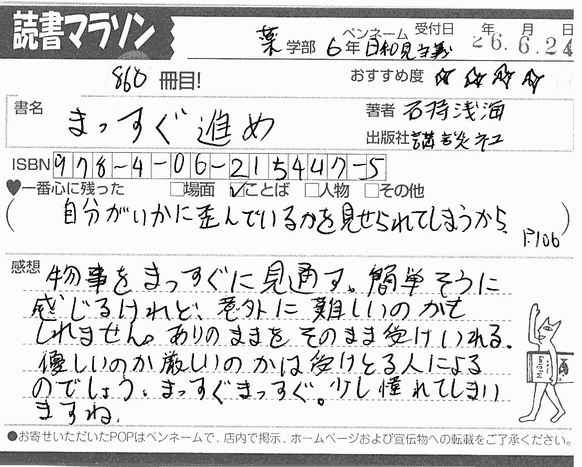 読書マラソン
薬学部 6年 ペンネーム 日和見主義 受付日 年 月 日
26.6.24
860 冊目!
おすすめ度 ☆☆☆☆
書名 まっすぐ進め
著者 石持浅海
出版社 講談社
ISBN 978-4-06-215447-5
♥一番心に残った □場面 ☑ことば □人物 □その他
(自分がいかに歪んでいるかを見せられてしまうから。 P.106)
感想 物事をまっすぐに見通す。簡単そうに
感じるけれど、意外に難しいのかも
しれません。ありのままをそのまま受けいれる。
優しいのか厳しいのかは受けとる人による
のでしょう。まっすぐまっすぐ。少し憧れてしまい
ますね。
●お寄せいただいたPOPはペンネームで、店内で掲示、ホームページおよび宣伝物への転載をご了承ください。